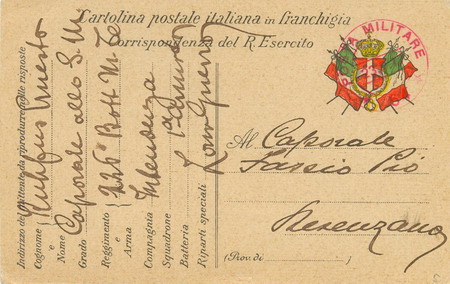 Cartolina postale italiana in franchigia
Corrispondenza del R. Esercito
POSTA MILITARE
Al Caporale
Fassio Pió
(Prov. di )
Indirizzo del mittente da riprodurre nelle risposte
Cognome e Nome Ernesto
Grado Caporale alla S. M.
Reggimento e Arma 226° Batt M. T.
Compagnia Intendenza
Squadrone
Batteria
Riparti speciali Zona Guerra